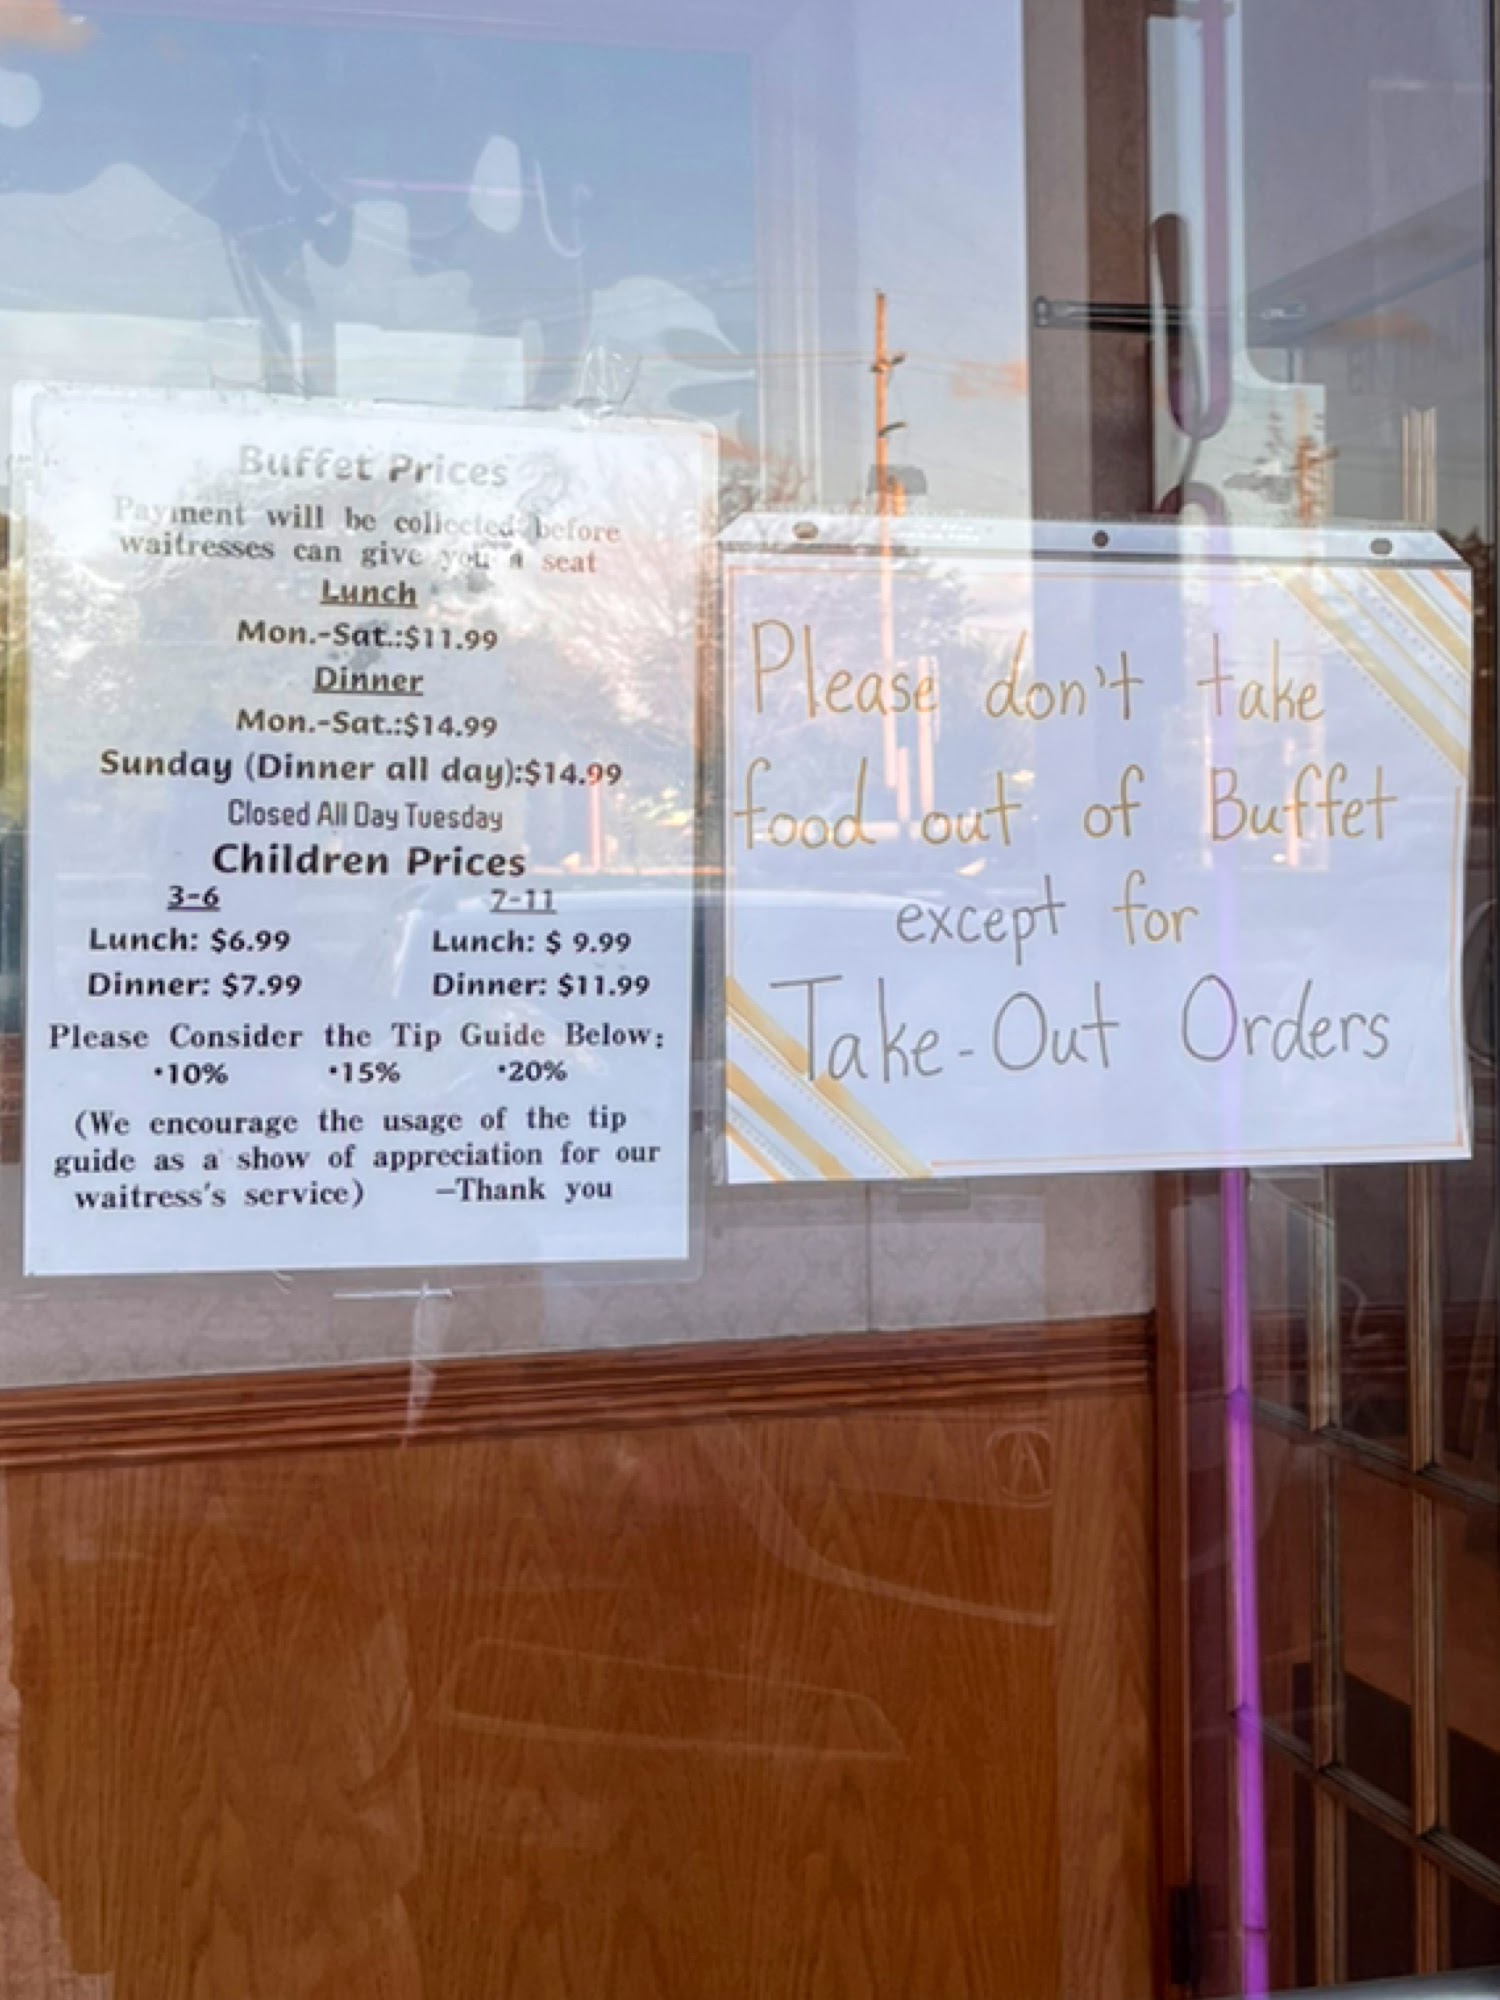 Buffet Prices
Payment will be collected before
waitresses can give you a seat
Lunch
Mon.-Sat.:$11.99
Dinner
Mon.-Sat.:$14.99
Sunday (Dinner all day):$14.99
Closed All Day Tuesday
Children Prices
3-6 7-11
Lunch: $6.99 Lunch: $ 9.99
Dinner: $7.99 Dinner: $11.99
Please Consider the Tip Guide Below:
•10% •15% •20%
(We encourage the usage of the tip
guide as a show of appreciation for our
waitress's service) –Thank you
Please don't take
food out of Buffet
except for
Take-Out Orders